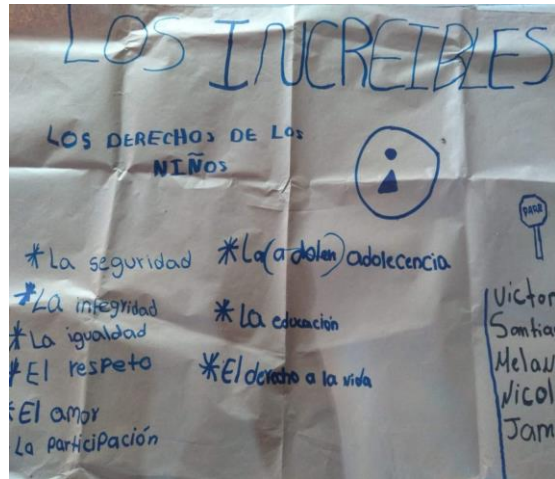 LOS INCREIBLES
LOS DERECHOS DE LOS
NIÑOS
*La seguridad
*La integridad
*La igualdad
*El respeto
*El amor
La participación
*La(a dolen) adolecencia
*La educación
*El derecho a la vida
PARE
Victor
Santia
Melan
Nicol
Jam